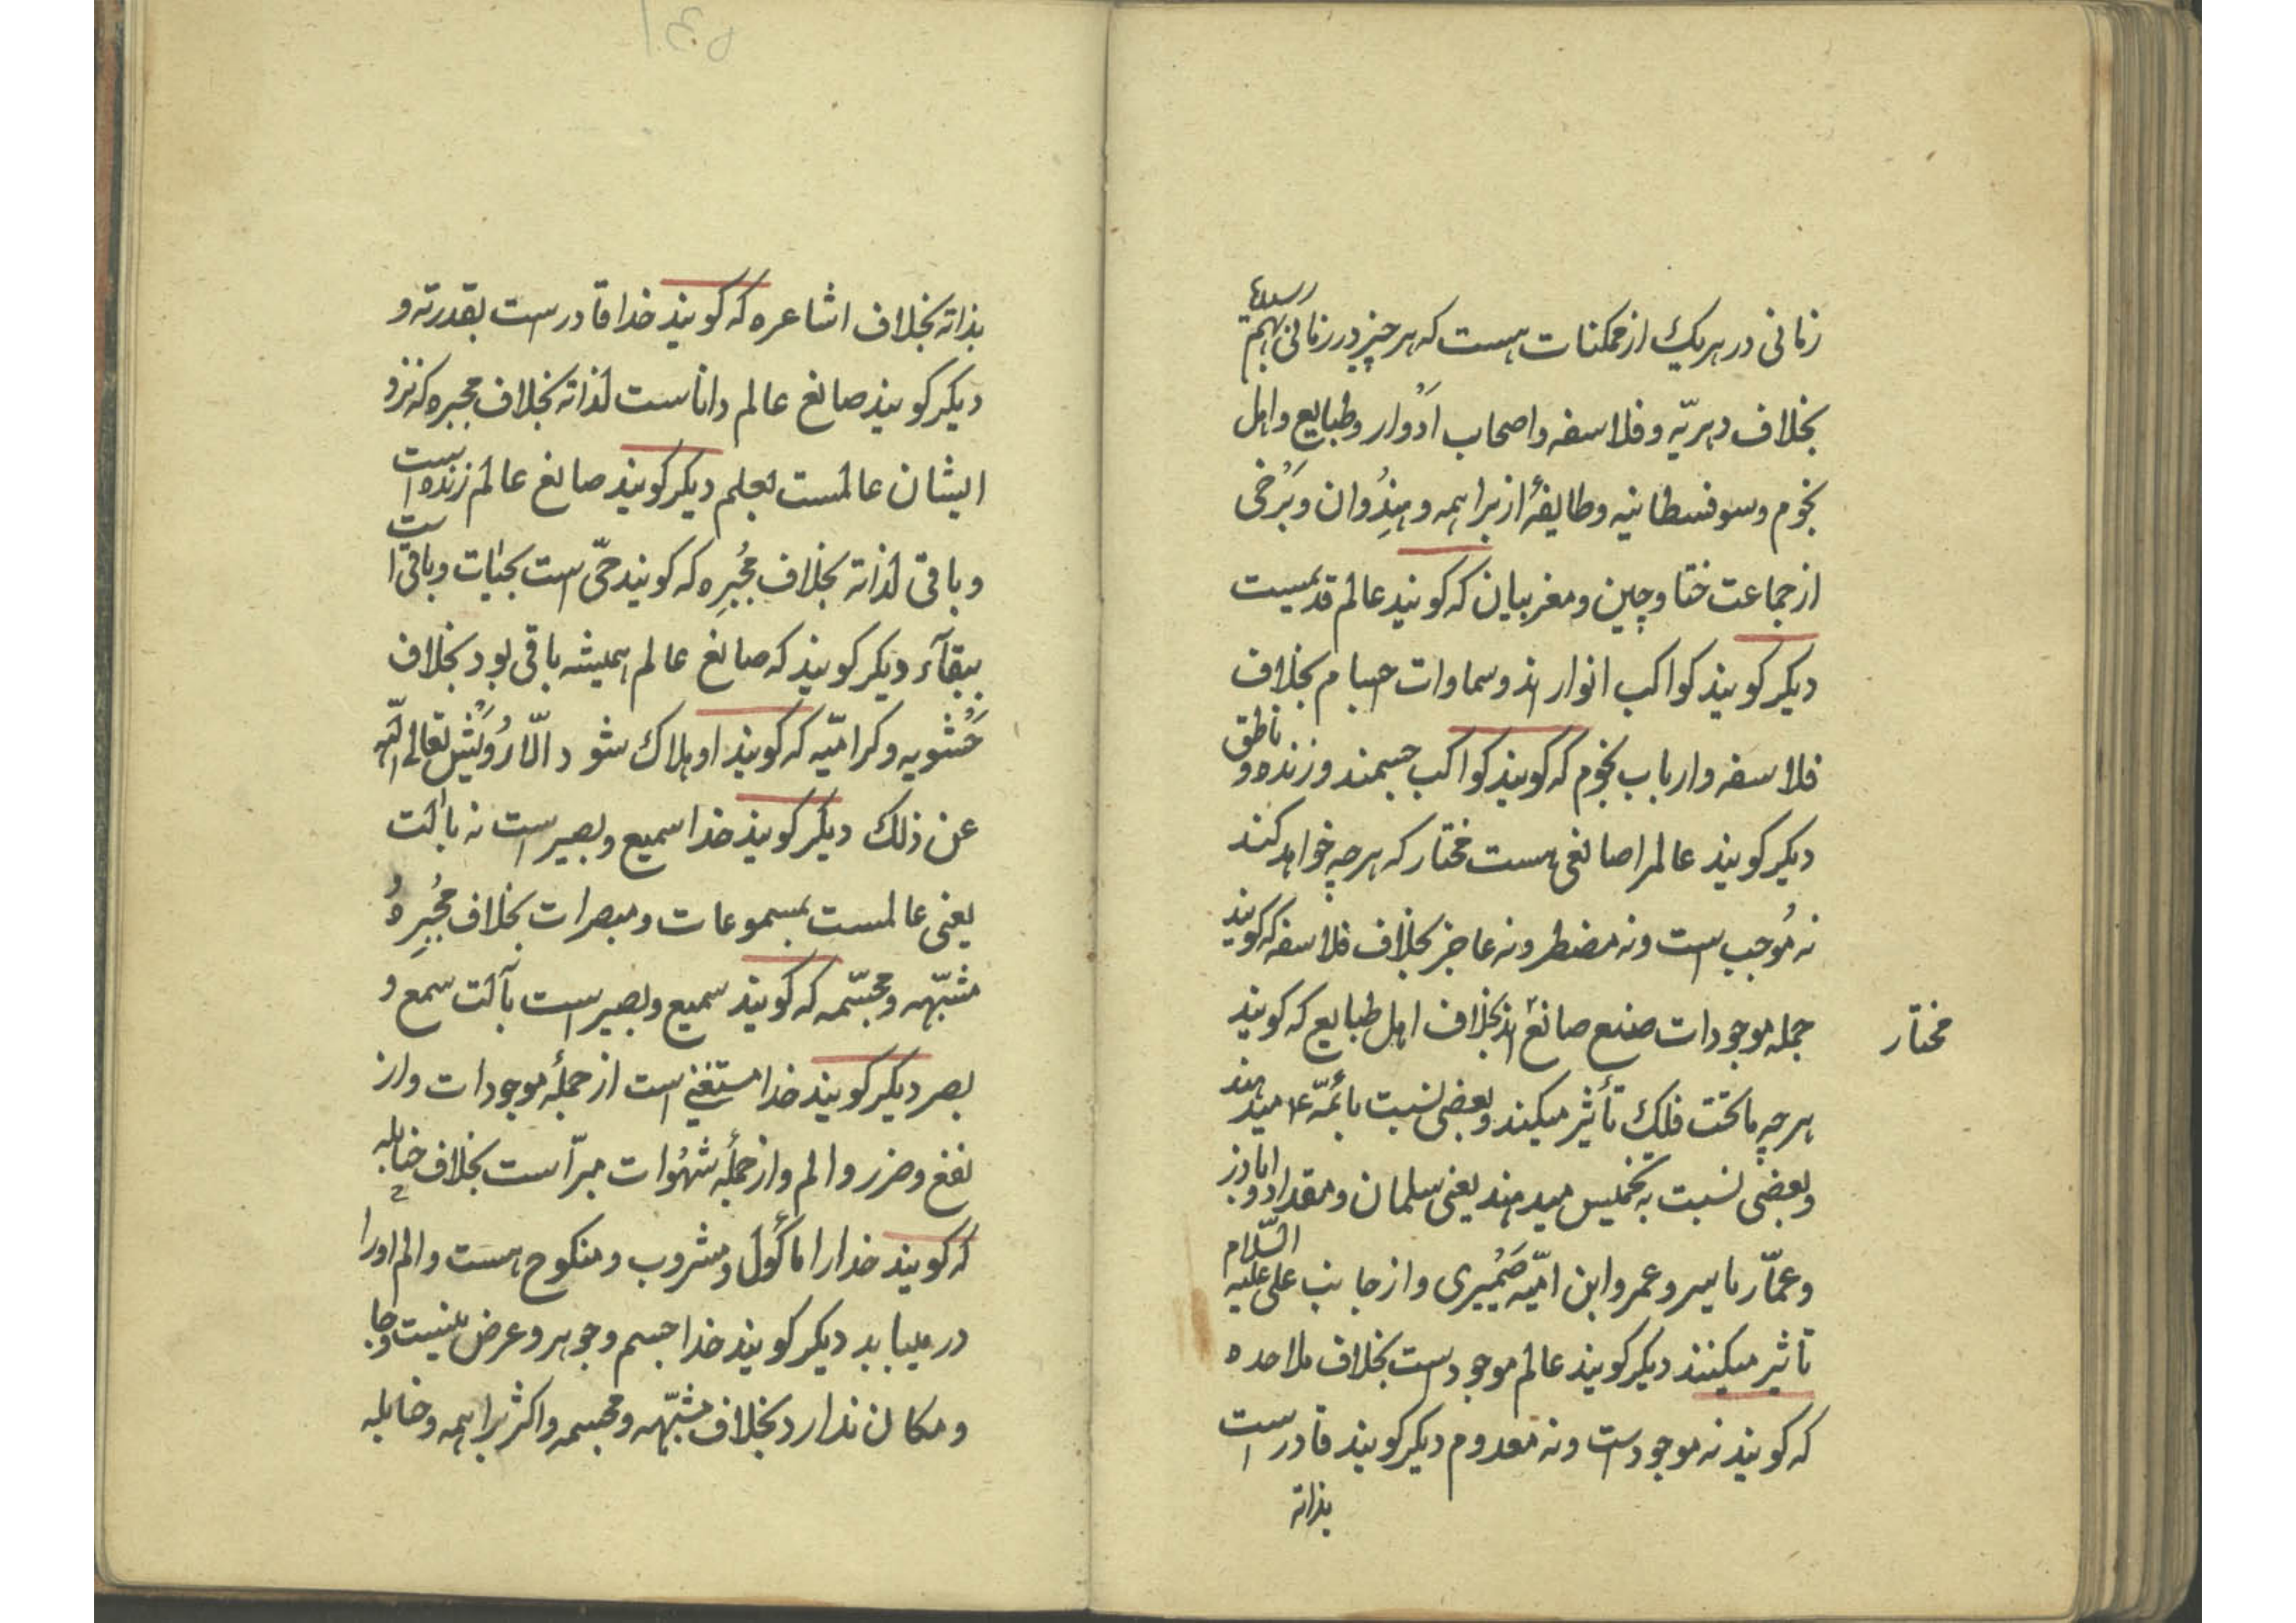 زمانی در هر یک از ممکنات هست که هر چیز در زمانی بهم رسد
بخلاف دهریّه و فلاسفه و اصحاب اَدْوار و طبایع و اهل
نجوم و سوفسطائیه و طایفهٔ از براهمه و هِنْدُوان و بَرْخی
از جماعت ختا و چین و مغربیان که کویند عالم قدیمست
دیکر کویند کواکب انوارند و سماوات اجسام بخلاف
فلاسفه و ارباب نجوم که کویند کواکب جسمند و زنده و ناطق
دیکر کویند عالمرا صانعی هست مختار که هر چه خواهد کند
نه مُوجب است و نه مضطر و نه عاجز بخلاف فلاسفه که کویند
جمله موجودات صنع صانع اند بخلاف اهل طبایع که کویند
مختار
هر چه ماتحت فلک تأثیر میکند و بعضی نسبت بائمّه ۴ میدهند
و بعضی نسبت به مخمّس میدهند یعنی سلمان و مقداد و اباذر
و عمّار یاسر و عمرو ابن امیّه ضَمیری و از جانب علی علیه السّلام
تأثیر میکنند دیکر کویند عالم موجودست بخلاف ملاحده
که کویند نه موجودست و نه معدوم دیکر کویند قادر است
بذاته
بذاته بخلاف اشاعره که کویند خدا قادرست بقدرته و
دیکر کویند صانع عالم داناست لذاته بخلاف مجبره که نزد
ایشان عالمست بعلم دیکر کویند صانع عالم زنده است
و باقی لذاته بخلاف مُجْبِره که کویند حیّ است بحیات و باقی است
ببقآء دیکر کویند که صانع عالم همیشه باقی بود بخلاف
حَشْویه و کرامیّه که کویند او هلاک شود الّا رُویَش تعالی اللّه
عن ذلک دیکر کویند خدا سمیع و بصیر است نه بآلت
یعنی عالمست بمسموعات و مبصرات بخلاف مُجْبِره و
مشبّهه و مجسّمه که کویند سمیع و بصیر است بآلت سمع و
بصر دیکر کویند خدا مستغنی است از جملهٔ موجودات و از
نفع و ضرر و الم و از جملهٔ شهوات مبرّاست بخلاف حنابله
که کویند خدارا مأکول و مشروب و منکوح هست و الم اورا
درمییابد دیکر کویند خدا جسم و جوهر و عرض نیست و جا
و مکان ندارد بخلاف مشبّهه و مجسمه و اکثر براهمه و حنابله